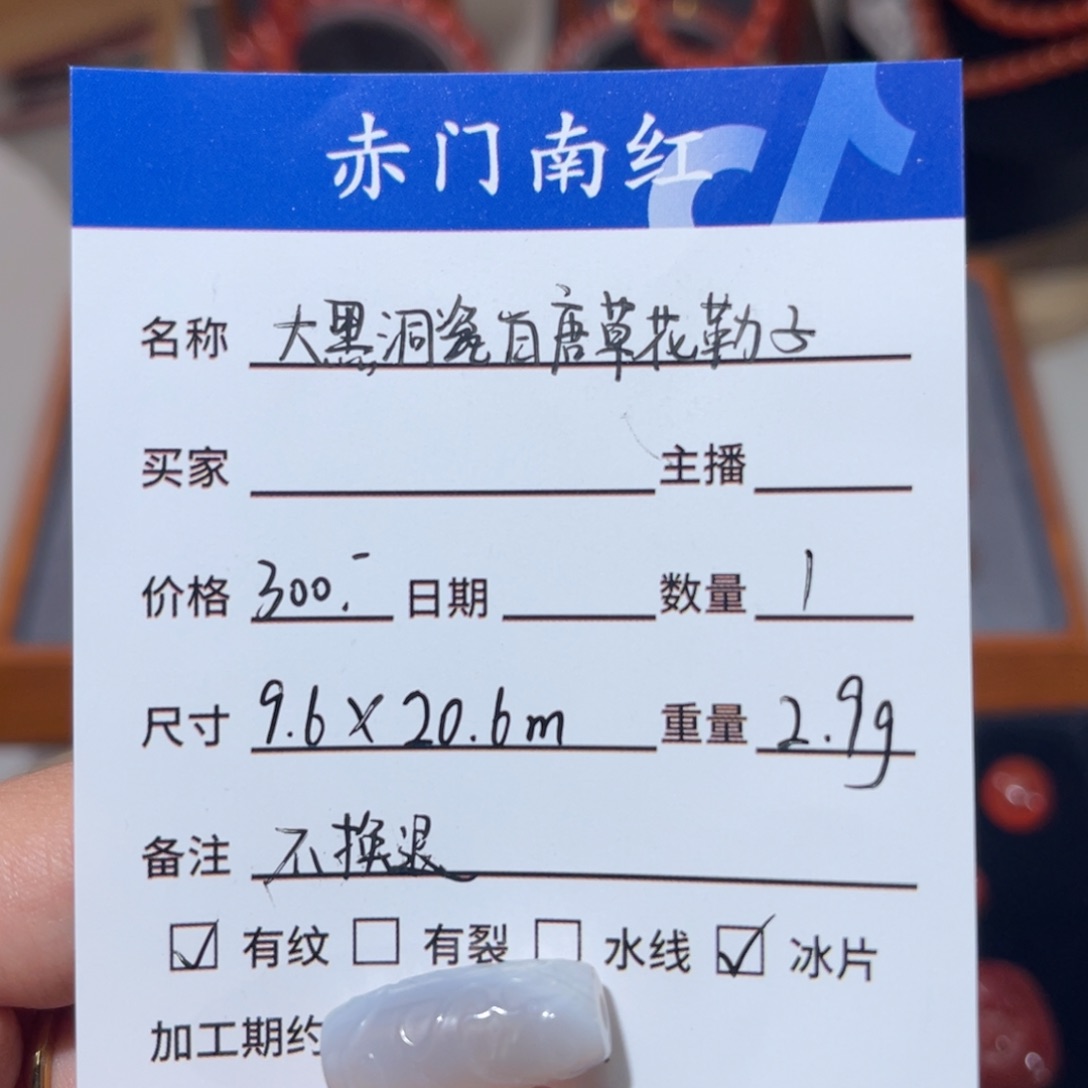 赤门南红
名称 大黑洞瓷白唐草花勒子
买家 主播
价格 300.- 日期 数量 1
尺寸 9.6×20.6m 重量 2.9g
备注 不换退
☑ 有纹 ☐ 有裂 ☐ 水线 ☑ 冰片
加工期约